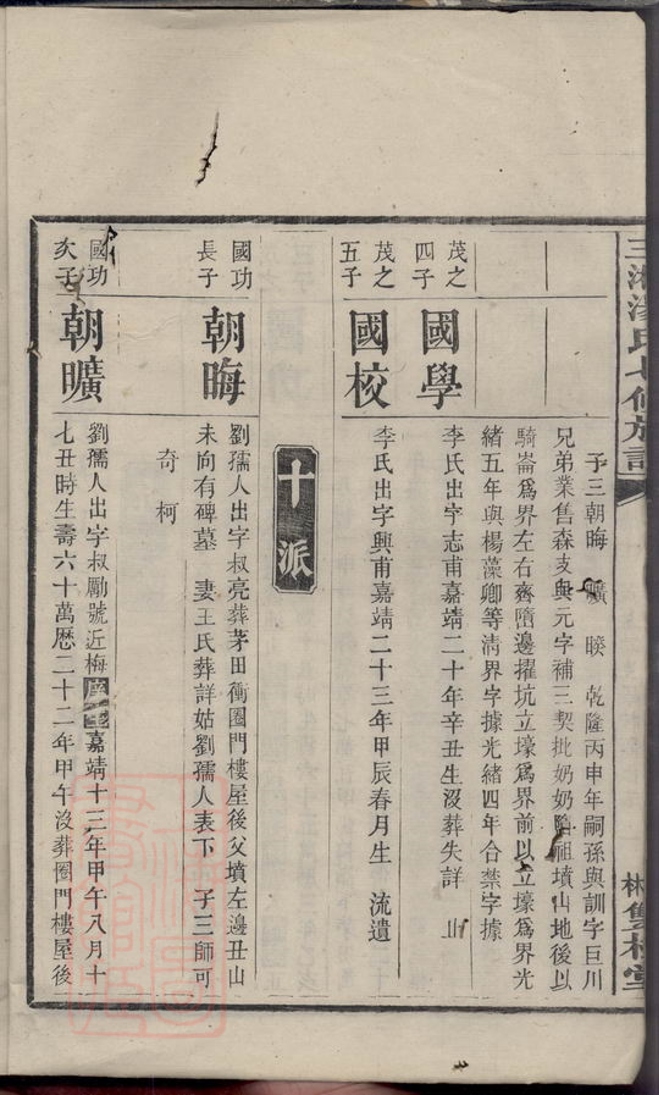 三湘湯氏七修族譜
林雙桂堂
子三朝晦 曠 睽 乾隆丙申年嗣孫與訓字巨川
兄弟業售森支與元字補三契批奶奶隋祖墳山地後以
騎崙爲界左右齊隋邊擢坑立壕爲界前以立壕爲界光
緒五年與楊藻卿等清界字據光緒四年合禁字據
茂之
四子
國學
李氏出字志甫嘉靖二十年辛丑生沒葬失詳
茂之
五子
國校
李氏出字興甫嘉靖二十三年甲辰春月生 流遺
十派
國功
長子
朝晦
劉孺人出字叔亮葬茅田衝圈門樓屋後父墳左邊丑山
未向有碑墓 妻王氏葬詳姑劉孺人表下 子三師可
奇 柯
國功
次子
朝曠
劉孺人出字叔勵號近梅庠生嘉靖十三年甲午八月十
七丑時生壽六十萬歷二十二年甲午沒葬圈門樓屋後